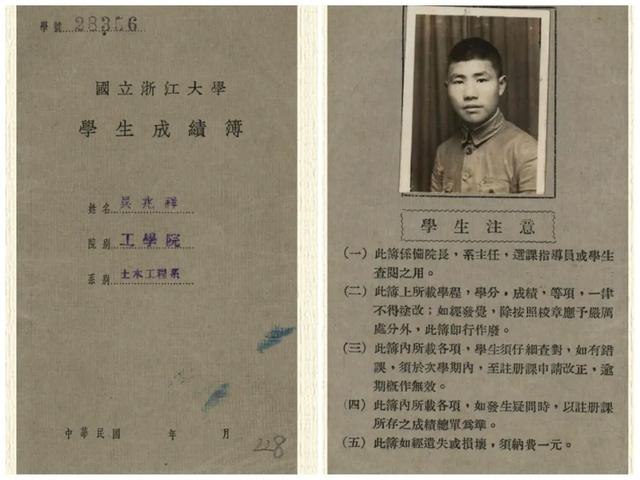 學號 28356
國立浙江大學
學生成績簿
姓名 吳兆祥
院別 工學院
系別 土木工程系
中華民國 年 月
228
學生注意
(一) 此簿係備院長，系主任，選課指導員或學生
查閱之用。
(二) 此簿上所載學程，學分，成績，等項，一律
不得塗改；如經發覺，除按照校章應予嚴厲
處分外，此簿卽行作廢。
(三) 此簿內所載各項，學生須仔細查對，如有錯
誤，須於次學期內，至註册課申請改正，逾
期概作無效。
(四) 此簿內所載各項，如發生疑問時，以註册課
所存之成績總單爲準。
(五) 此簿如經遺失或損壞，須納費一元。